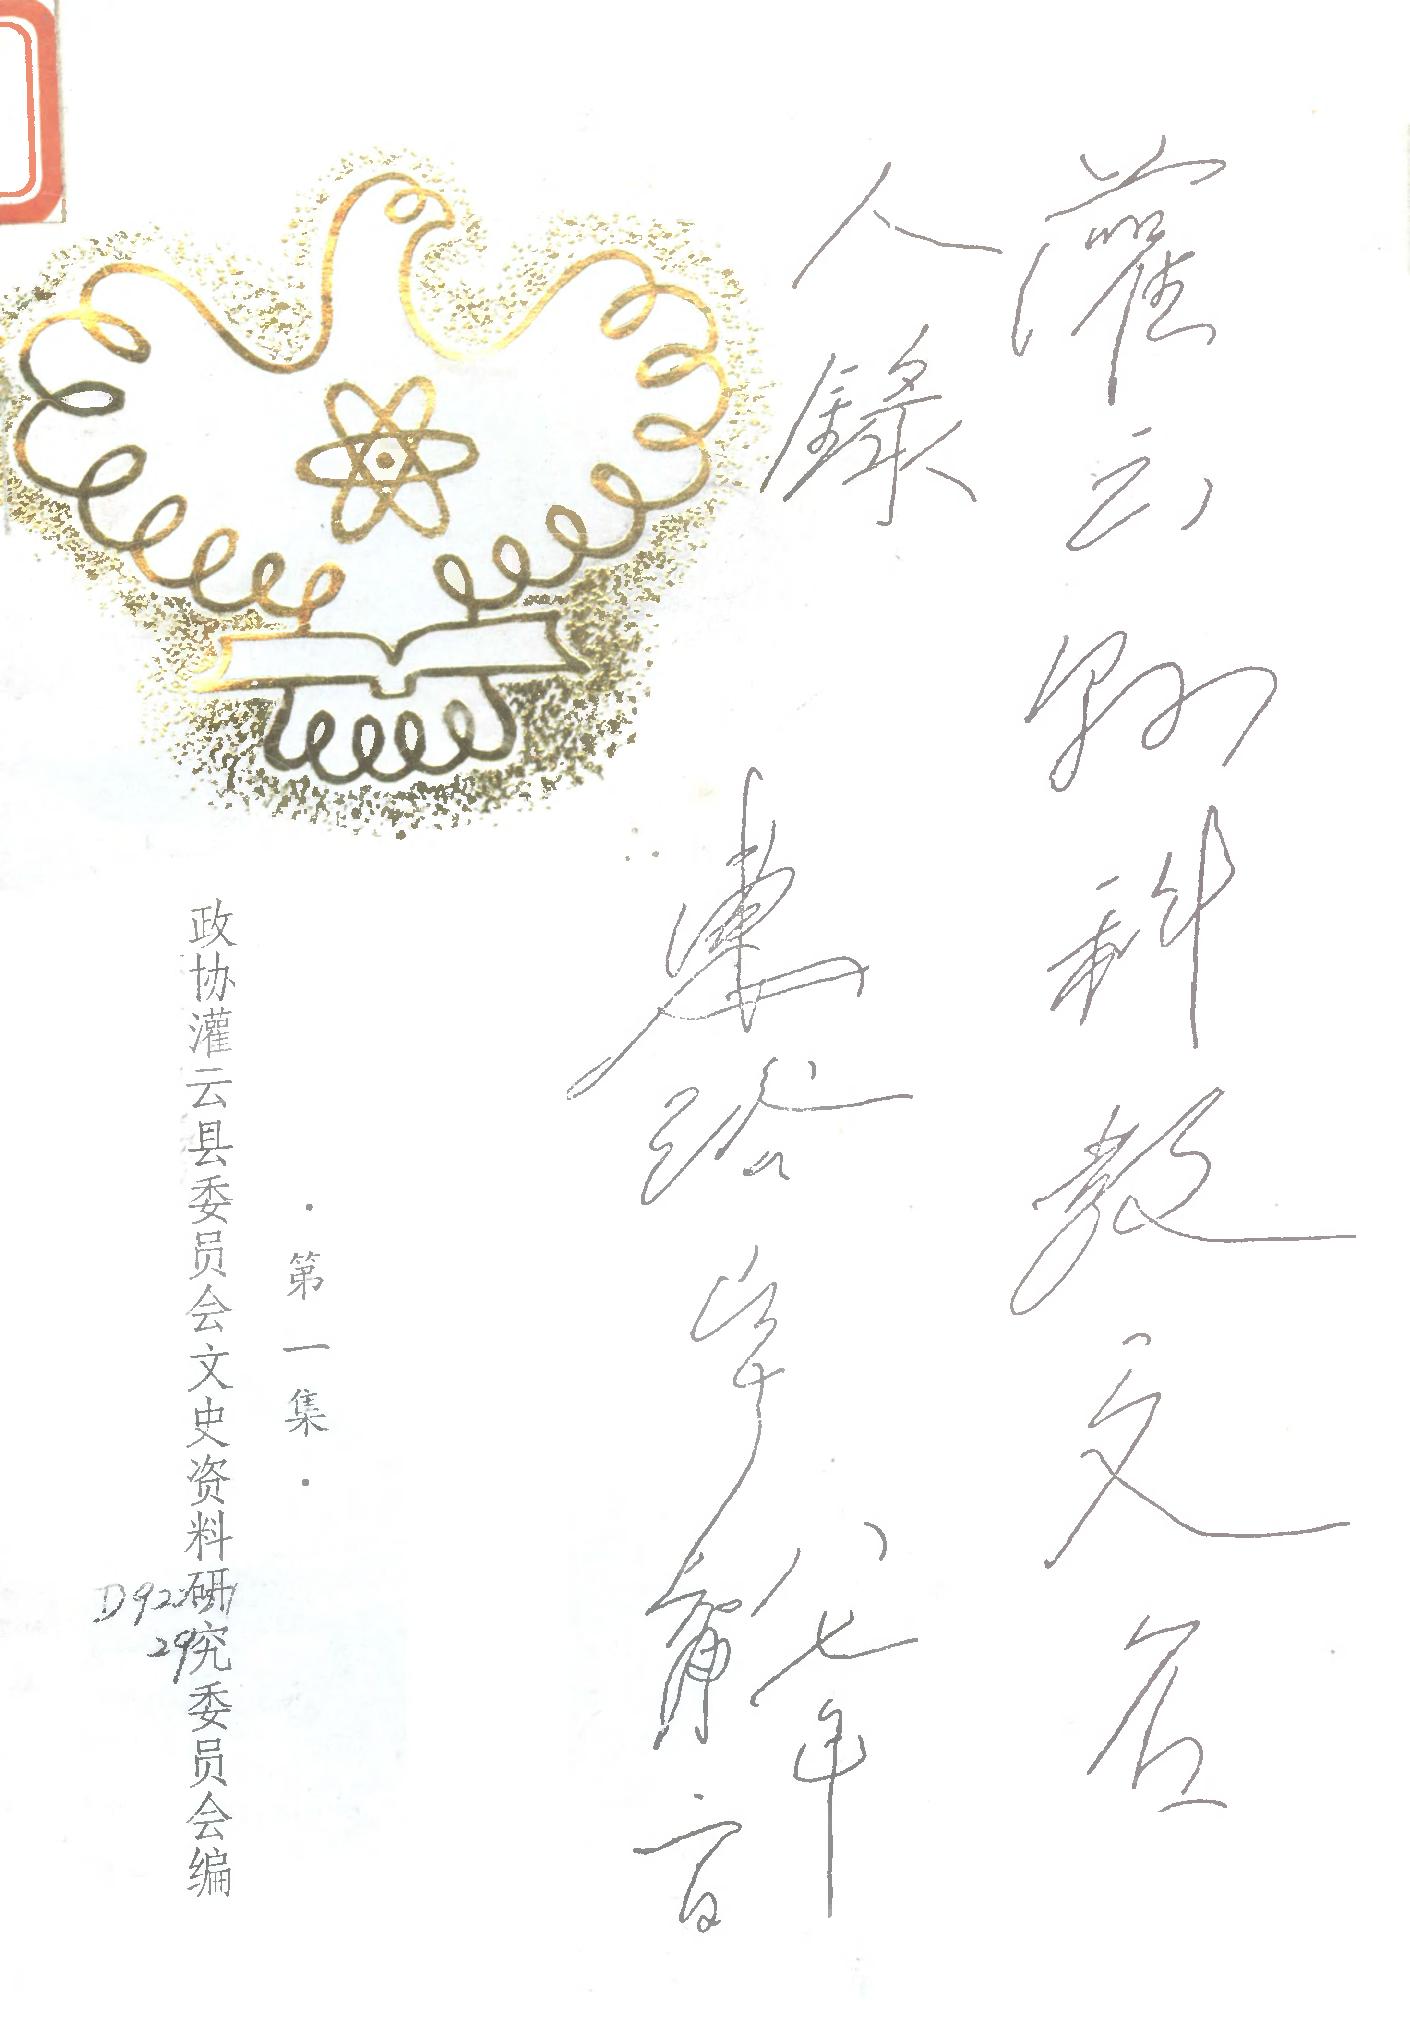 灌云县科教文名
人錄
八七年
·第一集·
政协灌云县委员会文史资料研究委员会编
D92
29